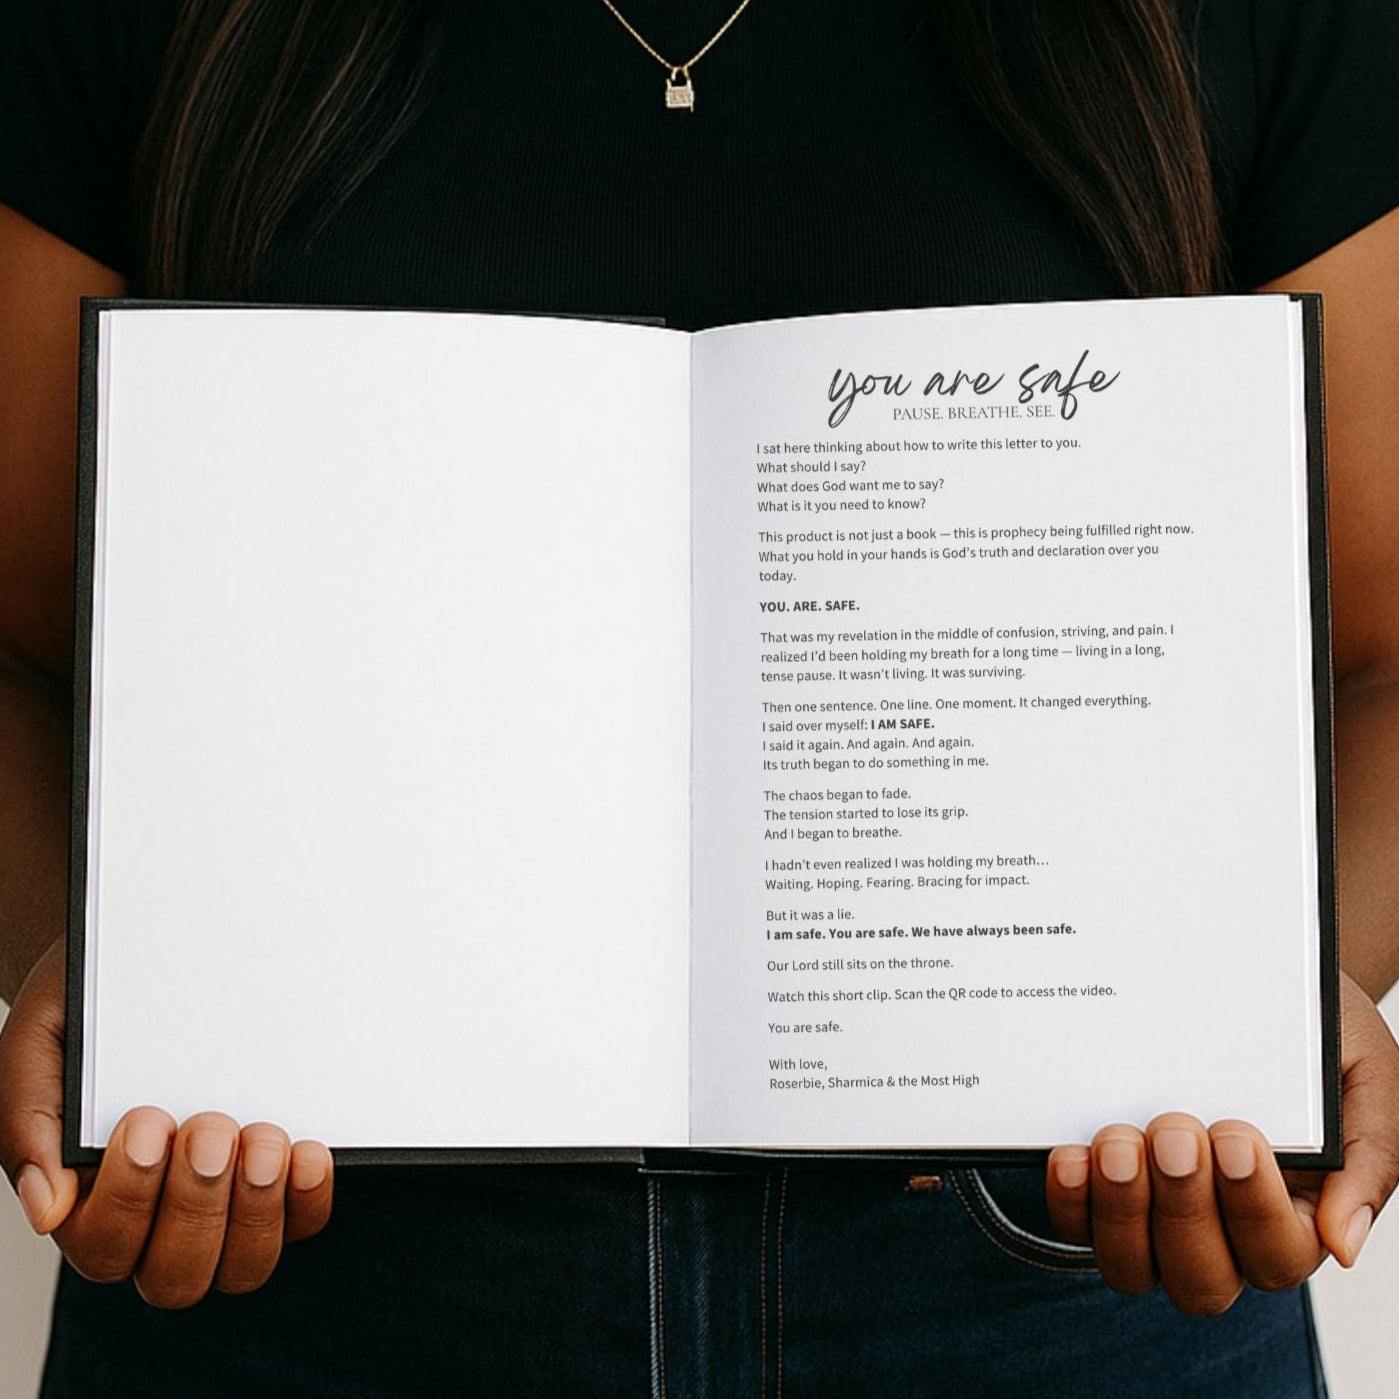 you are safe
PAUSE. BREATHE. SEE.
I sat here thinking about how to write this letter to you.
What should I say?
What does God want me to say?
What is it you need to know?
This product is not just a book — this is prophecy being fulfilled right now.
What you hold in your hands is God's truth and declaration over you
today.
YOU. ARE. SAFE.
That was my revelation in the middle of confusion, striving, and pain. I
realized I'd been holding my breath for a long time — living in a long,
tense pause. It wasn't living. It was surviving.
Then one sentence. One line. One moment. It changed everything.
I said over myself: I AM SAFE.
I said it again. And again. And again.
Its truth began to do something in me.
The chaos began to fade.
The tension started to lose its grip.
And I began to breathe.
I hadn't even realized I was holding my breath…
Waiting. Hoping. Fearing. Bracing for impact.
But it was a lie.
I am safe. You are safe. We have always been safe.
Our Lord still sits on the throne.
Watch this short clip. Scan the QR code to access the video.
You are safe.
With love,
Roserbie, Sharmica & the Most High